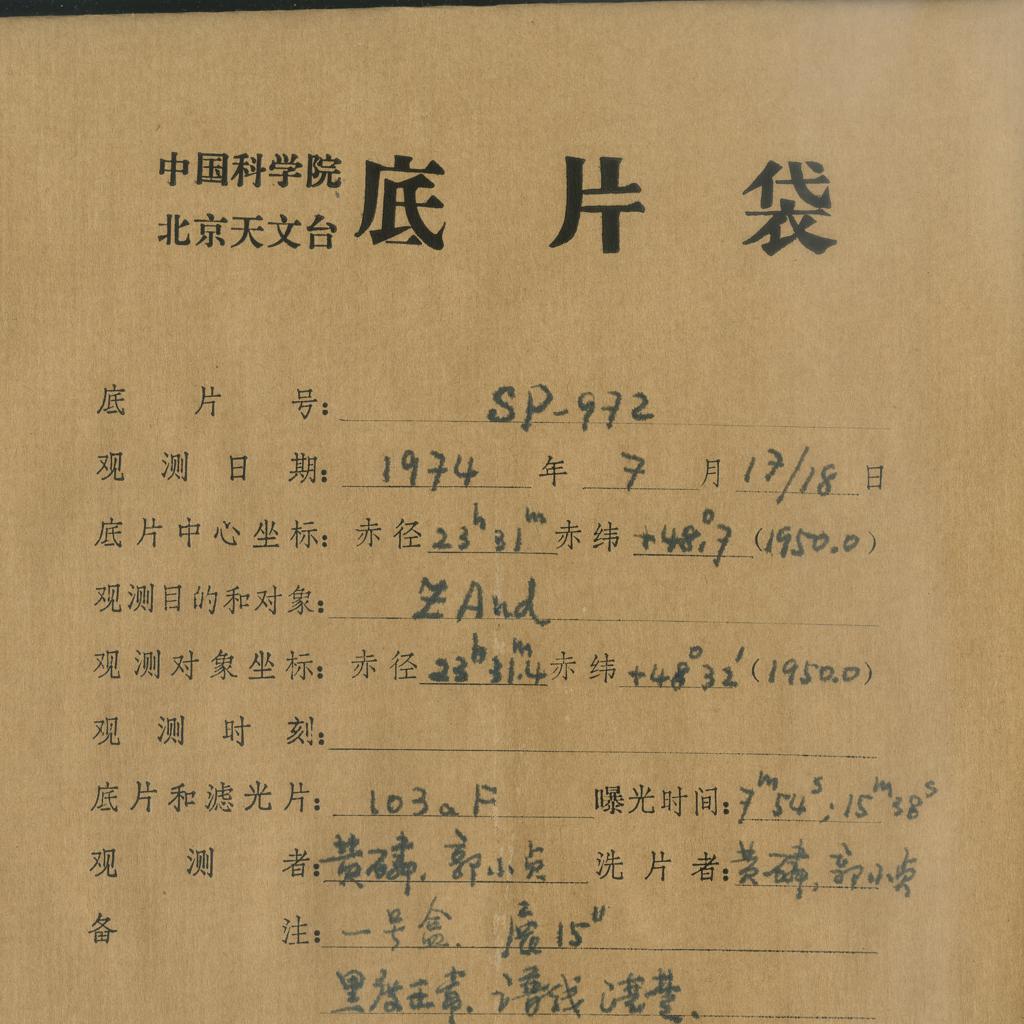 中国科学院
北京天文台
底片袋
底片号: SP-972
观测日期: 1974 年 7 月 17/18 日
底片中心坐标: 赤径 23h 31m 赤纬 +48°.7 (1950.0)
观测目的和对象: Z And
观测对象坐标: 赤径 23h 31m.4 赤纬 +48° 32′ (1950.0)
观测时刻:
底片和滤光片: 103aF 曝光时间: 7m 54s; 15m 38s
观测者: 黄磷, 郭小贞 洗片者: 黄磷, 郭小贞
备注: 一号盒. 展 15"
黑度正常. 谱线清楚.